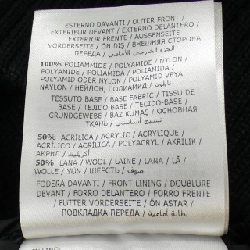 ESTERNO DAVANTI / OUTER FRONT /
EXTERIEUR DEVANT / EXTERIOR DELANTERO /
EXTERIOR FRENTE / AUSSENSEITE
VORDERSEITE / ÖN DIŞ / ВНЕШНЯЯ СТОРОНА
ПЕРЕДА /
100% POLIAMMIDE / POLYAMIDE / NYLON /
POLYAMIDE / POLIAMIDA / POLIAMIDA /
POLYAMID ODER NYLON / POLYAMID VEYA
NAYLON / НЕЙЛОН, /
TESSUTO BASE / BASE FABRIC / TISSU DE
BASE / TEJIDO BASE / TECIDO-BASE /
GRUNDGEWEBE / BAZ KUMAŞ / ОСНОВНАЯ
ТКАНЬ /
50% ACRILICA / ACRYLIC / ACRYLIQUE /
ACRÍLICO / ACRÍLICO / POLYACRYL / AKRILIK /
АКРИЛ /
50% LANA / WOOL / LAINE / LANA / LÃ /
WOLLE / YÜN / ШЕРСТЬ / صوف
FODERA DAVANTI / FRONT LINING / DOUBLURE
DEVANT / FORRO DELANTERO / FORRO FRENTE
/ FUTTER VORDERSEITE / ÖN ASTAR /
ПОДКЛАДКА ПЕРЕДА / بطانة أمامية